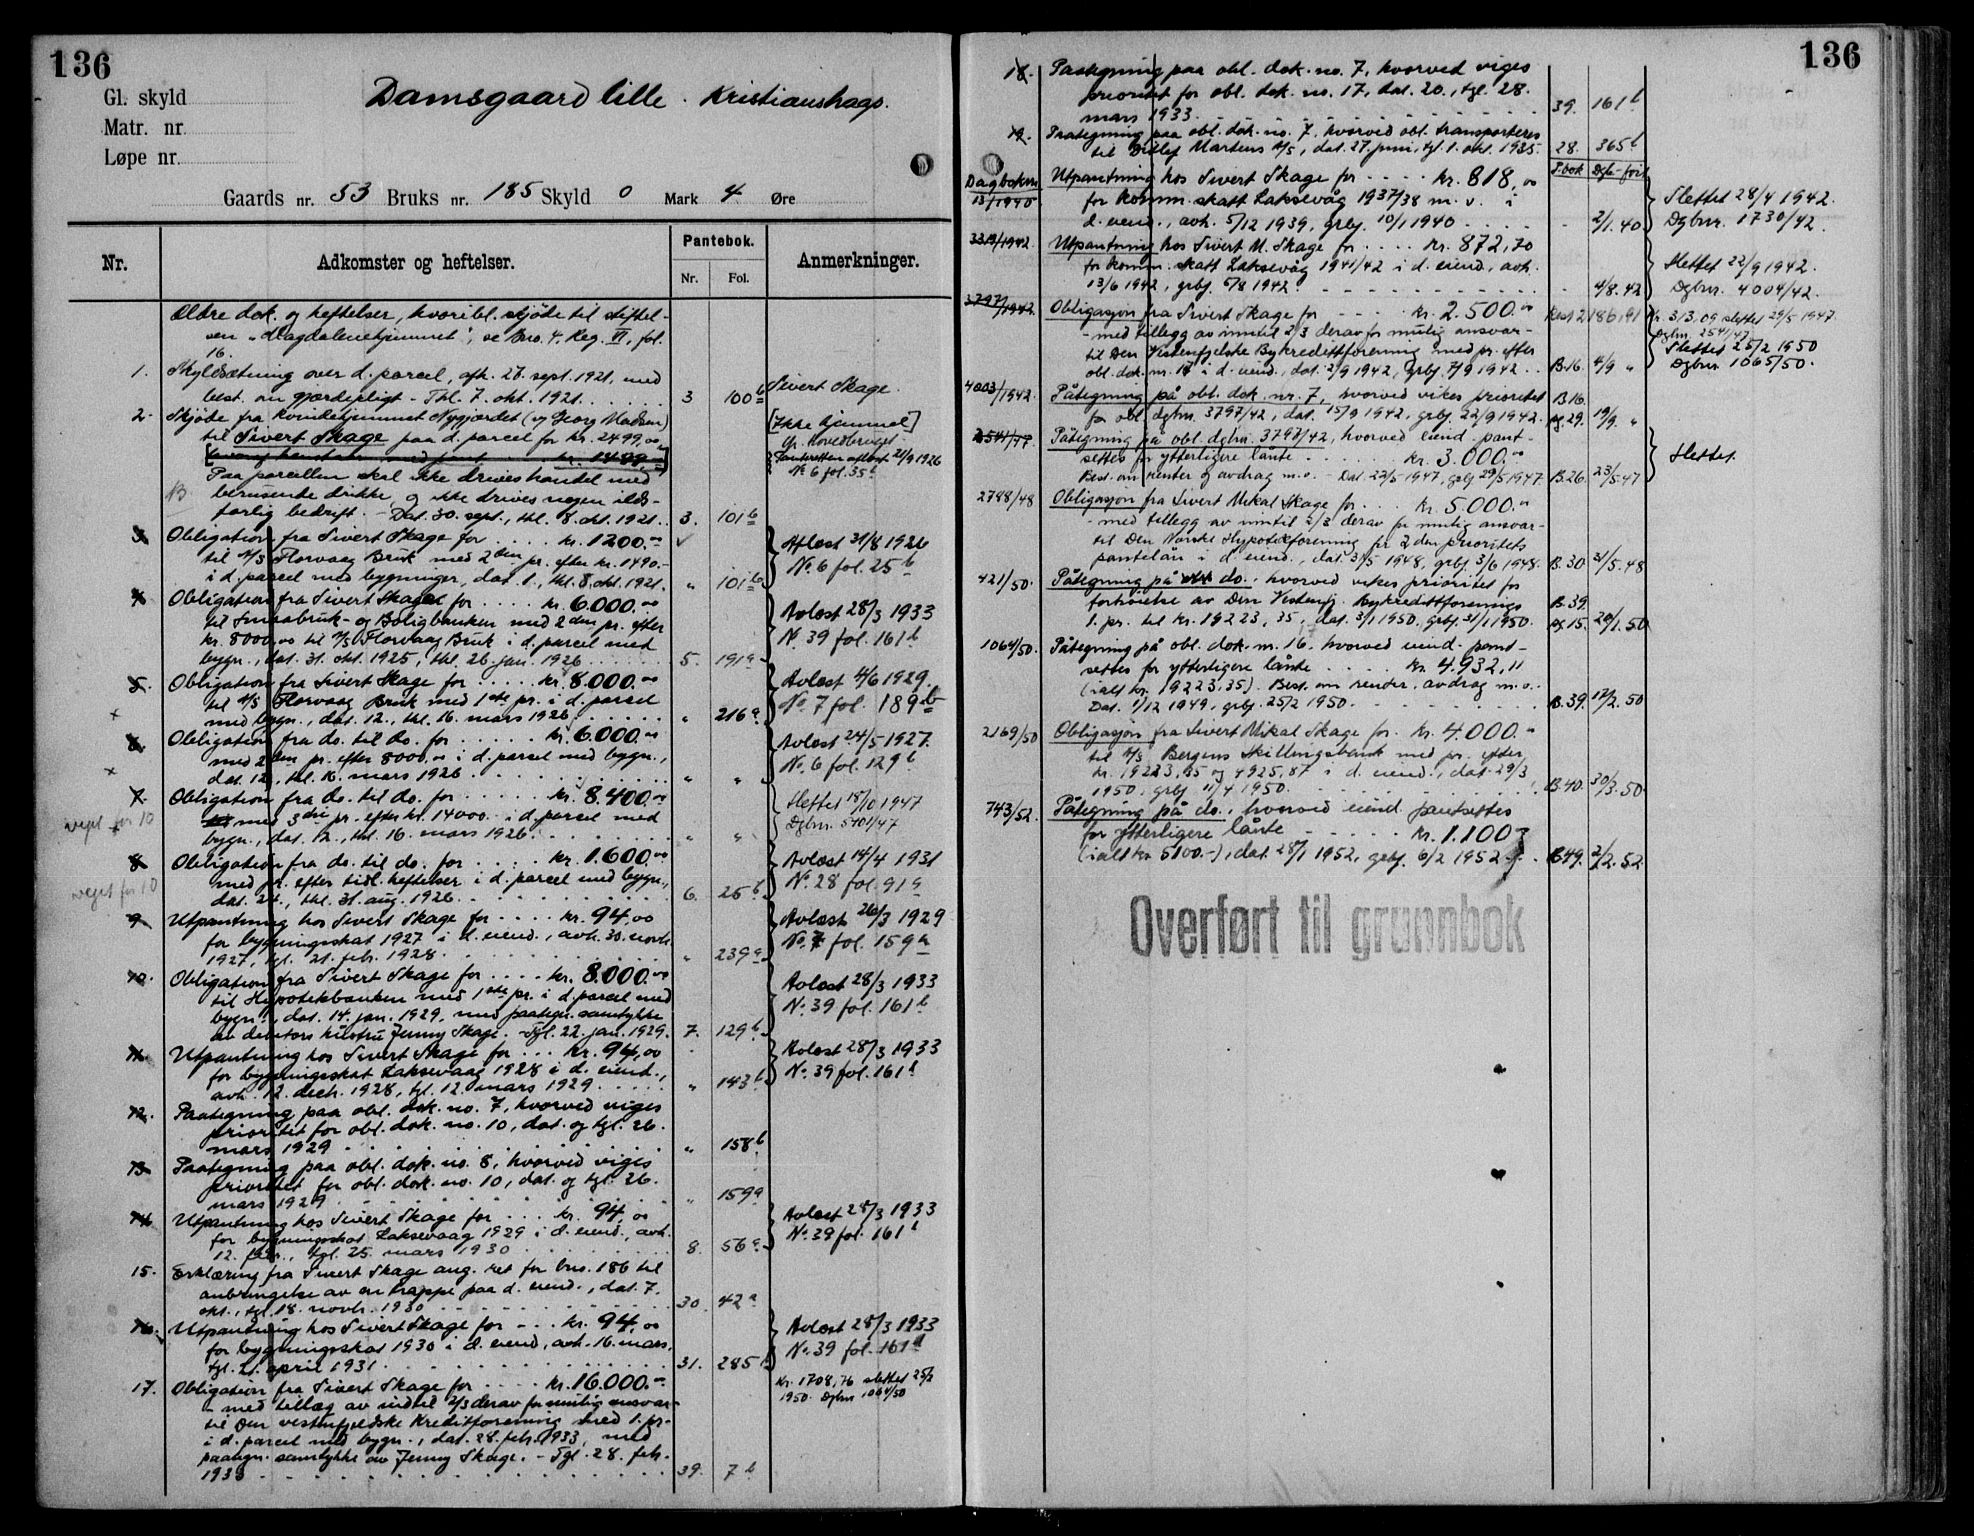 136
Gl. skyld
Matr. nr.
Løpe nr.
Damsgaard lille. Kristianshags.
Gaards nr. 53 Bruks nr. 185 Skyld 0 Mark 4 Øre
Nr.
Adkomster og heftelser.
Pantebok.
Nr. Fol.
Anmerkninger.
Ældre dok. og heftelser, hvoribl. skjøde til stiftel-
sen „Magdalenehjemmet", se Bno. 4. Reg. VI, fol.
16.
1. Skyldsætning over d. parcel, afh. 27. sept. 1921, med
best. om gjærdepligt - Thl. 7. okt. 1921. 3 100 b Sivert Skage.
2. Skjøde fra Kvindehjemmet Nygjærdet (v/ Georg Madsen)
til Sivert Skage paa d. parcel for kr. 2499,00
[Ikke hjemmel]
Paa parcellen skal ikke drives handel med
berusende drikke, og ikke drives nogen ilds-
farlig bedrift. - Dat. 30. sept., thl. 8. okt. 1921. 3. 101 b
Panteretten aflæst 21/9 1926
No 6 fol. 35 b
3. Obligation fra Sivert Skage for .... kr. 1200.00
til A/S Florvaag Bruk med 2den pr. efter kr. 1490.-
i d. parcel med bygninger, dat. 1., thl. 8. okt. 1921. " 101 b
Aflæst 31/8 1926
No 6 fol. 25 b
4. Obligation fra Sivert Skage for .... kr. 6.000.00
til Smaabruk- og Boligbanken med 2den pr. efter
kr. 8000,00 til A/S Florvaag Bruk i d. parcel med
bygn., dat. 31. okt. 1925, thl. 26. jan. 1926 5. 191 a
Avlæst 28/3 1933
N. 39 fol. 161 b
5. Obligation fra Sivert Skage for .... kr. 8.000.00
til A/S Florvaag Bruk med 1ste pr. i d. parcel
med bygn., dat. 12., thl. 16. mars 1926. " 216 a
Avlæst 4/6 1929.
No 7 fol. 189 b
6. Obligation fra do. til do. for .... kr. 6.000.00
med 2den pr. efter 8000,00 i d. parcel med bygn.,
dat. 12., thl. 16. mars 1926 " "
Avlæst 24/5 1927.
No. 6 fol. 129 b
7. Obligation fra do. til do. for .... kr. 8.400.00
med 3die pr. efter kr. 14000.- i d. parcel med
bygn., dat. 12., thl. 16. mars 1926. " "
veget for 10
Slettet 15/10 1947
Dgbnr. 5401/47
8. Obligation fra do. til do. for .... kr. 1.600.00
med pr. efter tidl. heftelser i d. parcel med bygn.,
dat. 24., thl. 31. aug. 1926. 6. 25 b
veget for 10
Avlæst 14/4 1931
No. 28 fol. 91 a
9. Utpantning hos Sivert Skage for .... kr. 94,00
for bygningsskat 1927 i d. eiend., avh. 30. novb.
1927, tgl. 21. feb. 1928. " 239 a
Avlæst 26/3 1929
No. 7 fol. 159 a
10. Obligation fra Sivert Skage for .... kr. 8.000.00
til Hypotekbanken med 1ste pr. i d. parcel med
bygn., dat. 14. jan. 1929, med paategn. samtykke
av debitors hustru Jenny Skage. - Tgl. 22. jan. 1929. 7. 129 b
Avlæst 28/3 1933
No. 39 fol. 161 b
11. Utpantning hos Sivert Skage for ... kr. 94,00
for bygningsskat Laksevaag 1928 i d. eiend.,
avh. 12. decb. 1928, tgl. 12. mars 1929. " 143 b
Avlæst 28/3 1933
No. 39 fol. 161 b
12. Paategning paa obl. dok. no. 7, hvorved viges
prioritet for obl. dok. no. 10, dat. og tgl. 26.
mars 1929 " 158 b
13. Paategning paa obl. dok. no. 8, hvorved viges
prioritet for obl. dok. no. 10, dat. og tgl. 26.
mars 1929 " 159 a
14. Utpantning hos Sivert Skage for ... kr. 94,00
for bygningsskat Laksevaag 1929 i d. eiend., avh.
12. febr., tgl. 25. mars 1930 8. 56 a
Avlæst 28/3 1933
No. 39 fol. 161 b
15. Erklæring fra Sivert Skage ang. ret for bno. 186 til
anbringelse av en trappe paa d. eiend., dat. 7.
okt., tgl. 18. novb. 1930 30. 42 a
16. Utpantning hos Sivert Skage for ... kr. 94,00
for bygningsskat 1930 i d. eiend., avh. 16. mars,
tgl. 21. april 1931. 31. 285
Avlæst 28/3 1933
No. 39 fol. 161
17. Obligation fra Sivert Skage for .... kr. 16.000.00
- med tillæg av indtil 2/3 derav for mulig ansvar-
til Den vestenfjeldske Kreditforening med 1. pr.
i d. parcel med bygn., dat. 28. feb. 1933, med
paategn. samtykke av Jenny Skage. - Tgl. 28. feb.
1933 39. 7 b
Kr. 1708,76 slettet 25/2
1950. Dgbnr 1064/50
136
18. Paategning paa obl. dok. no. 7, hvorved viges
prioritet for obl. dok. no. 17, dat. 20., tgl. 28.
mars 1933 39. 161 b
19. Paategning paa obl. dok. no. 7, hvorved obl. transporteres
til Ditlef Martens A/S, dat. 27. juni, tgl. 1. okt. 1935. 28. 365 b
Dagboknr. P.bok Dgb-ført
13/1940 Utpantning hos Sivert Skage for .... kr. 818,00
for komm. skatt Laksevåg 1937/38 m. v. i
d. eiend., avh. 5/12 1939, grbj. 10/1 1940 - 2/1. 40
Slettet 28/4 1942.
Dgbnr. 1730/42.
3313/1942. Utpantning hos Sivert M. Skage for .... kr. 872,70
for komm. skatt Laksevåg 1941/42 i d. eiend., avh.
13/6 1942, grbj. 5/8 1942. - 4/8. 42
Slettet 22/9 1942.
Dgbnr. 4004/42.
3797/1942. Obligasjon fra Sivert Skage for .... kr. 2.500.00
- med tillegg av inntil 2/3 derav for mulig ansvar-
til Den Vestenfjelske Bykredittforening med pr. efter
obl. dok. nr. 17 i d. eiend., dat. 2/9 1942, grbj. 7/9 1942 B.16. 4/9 "
Kr. 313,09 slettet 29/5 1947.
Dgbnr. 2541/47
Slettet 25/2 1950
Dgbnr. 1065/50.
4003/1942. Påtegning på obl. dok. nr. 7, hvorved vikes prioritet
for obl. dgbnr. 3797/42, dat. 15/9 1942, grbj. 22/9 1942. B.16. pg 29. 19/9. "
2541/47 Påtegning på obl. dgbnr. 3797/42, hvorved eiend. pant-
settes for ytterligere lånte ..... kr. 3.000.00
Best. om renter og avdrag m.v. - Dat. 22/5 1947, grbj 29/5 1947. B.26. 23/5.47
Slettet.
2788/48 Obligasjon fra Sivert Mikal Skage for ... kr. 5.000.00
- med tillegg av inntil 2/3 derav for mulig ansvar-
til Den Norske Hypotekforening for 2den prioritets
pantelån i d. eiend., dat. 31/5 1948, grbj. 3/6 1948. B.30. 31/5.48
421/50. Påtegning på do., hvorved vikes prioritet for
forhøielse av Den Vestenfj. Bykredittforenings
1. pr. til kr. 19223,35, dat. 3/1 1950, grbj. 31/1 1950. B.39. pg 15. 20/1.50
1064/50. Påtegning på obl. dok. nr. 16, hvorved eiend. pant-
settes for ytterligere lånte .... kr. 4.932,11
(ialt kr. 19223,35). Best. om renter, avdrag m.v.
Dat. 1/12 1949, grbj. 25/2 1950. B.39. 17/2.50
2169/50 Obligasjon fra Sivert Mikal Skage for kr. 4.000.-
til A/S Bergens Skillingsbank med pr. efter
kr. 19223,35 og 4925,87 i d. eiend., dat. 29/3
1950, grbj. 11/4 1950. B.40. 30/3.50
743/52. Påtegning på do., hvorved eiend. pantsettes
for ytterligere lånte .... kr. 1.100
(ialt kr 5100.-), dat. 28/1 1952, grbj. 6/2 1952. B.49. 2/2.52
Overført til grunnbok